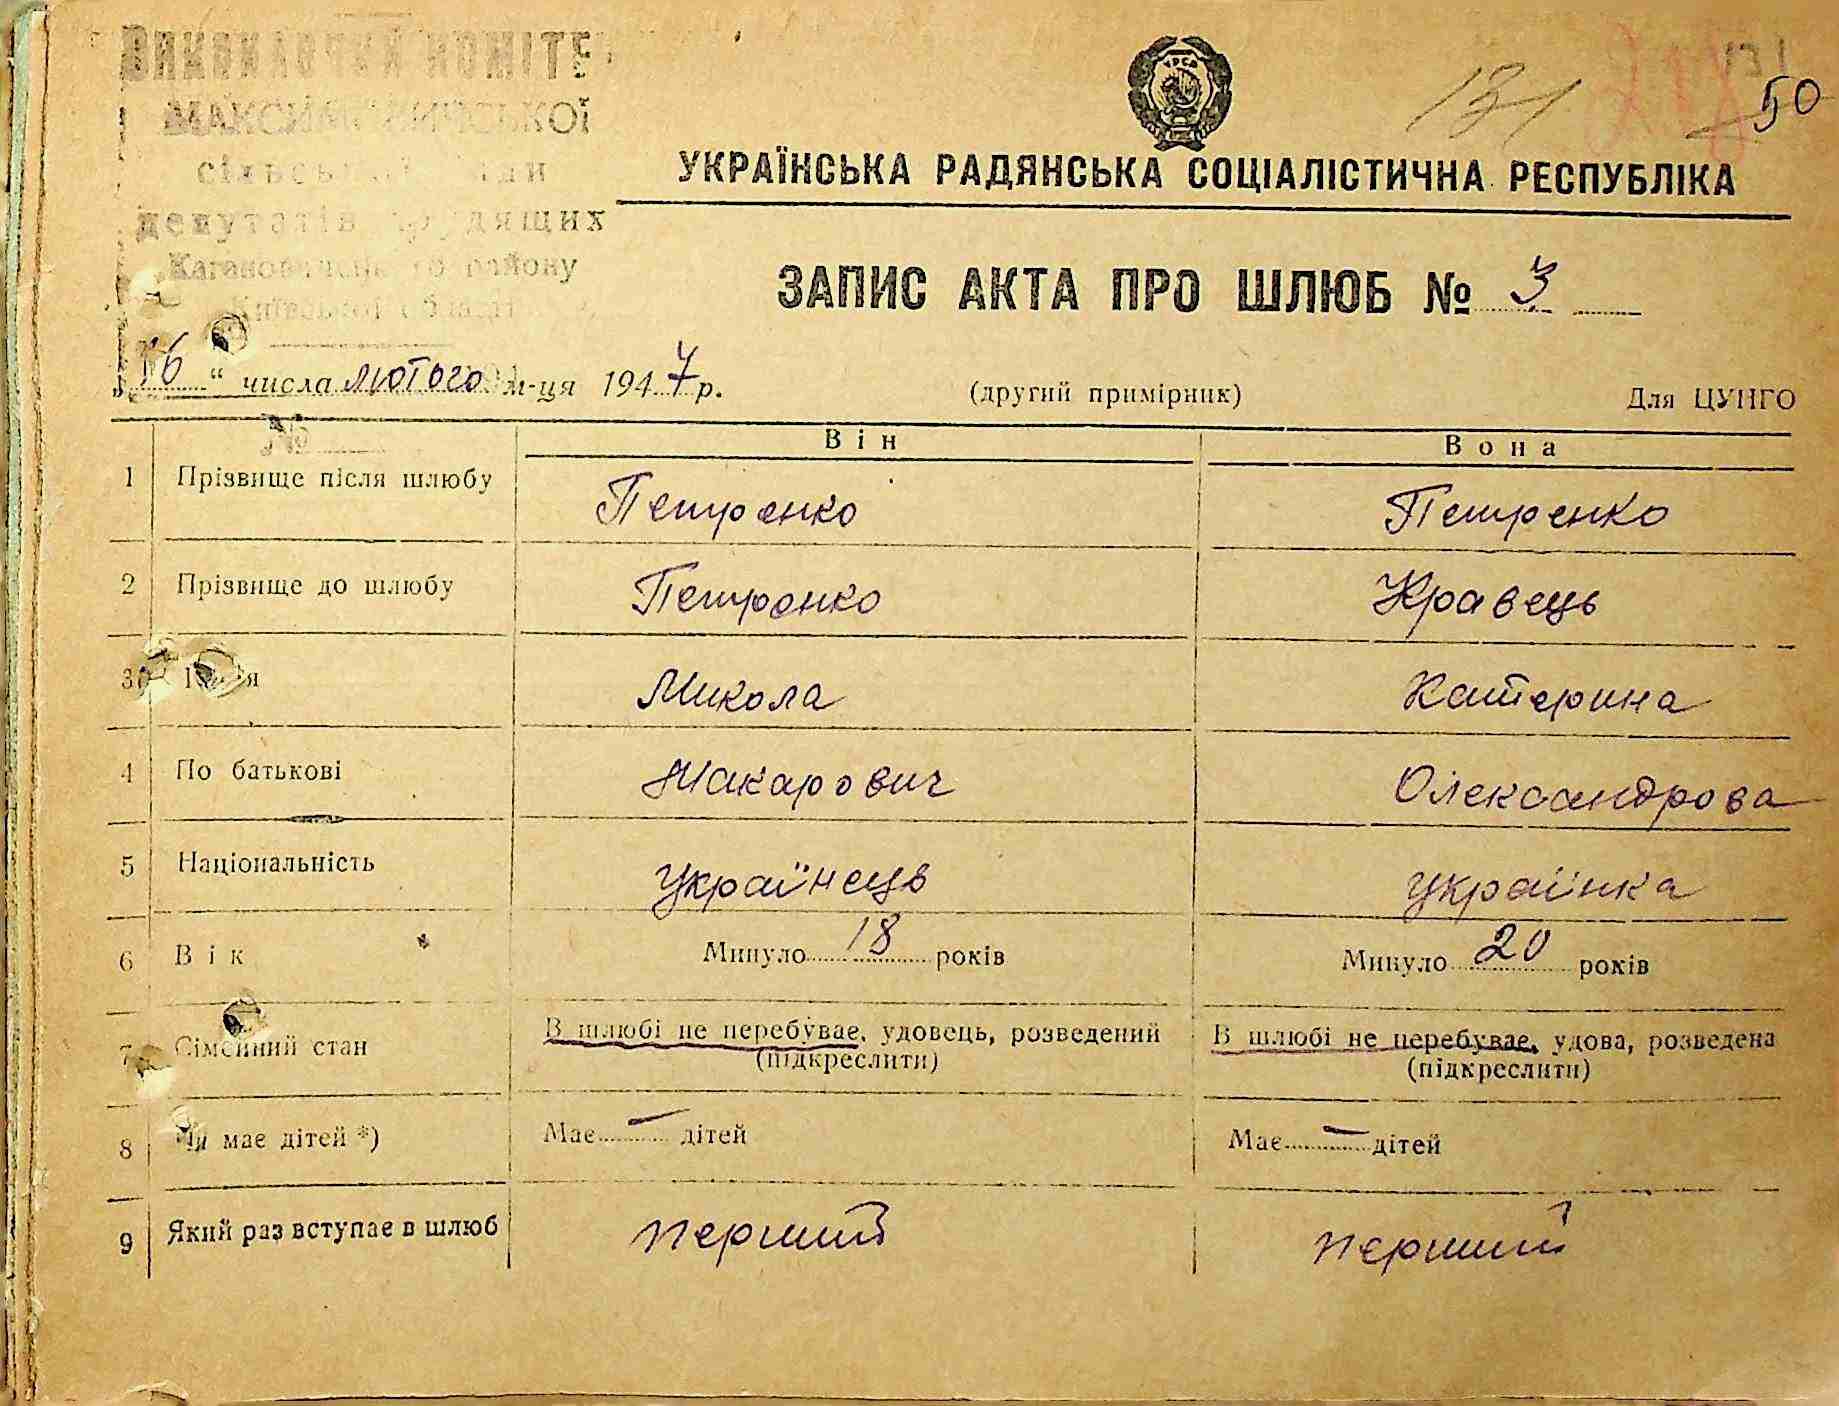 ВИКОНАВЧИЙ КОМІТЕ
сільської ради
депутатів трудящих
Кагановичського району
Київської області
131
131
50
УРСР
УКРАЇНСЬКА РАДЯНСЬКА СОЦІАЛІСТИЧНА РЕСПУБЛІКА
ЗАПИС АКТА ПРО ШЛЮБ № 3
„16“ числа лютого м-ця 1947 р. (другий примірник) Для ЦУНГО
№
Він Вона
1 Прізвище після шлюбу Петренко Петренко
2 Прізвище до шлюбу Петренко Кравець
3 Ім'я Микола Катерина
4 По батькові Макарович Олександрова
5 Національність Українець українка
6 Вік Минуло 18 років Минуло 20 років
7 Сімейний стан В шлюбі не перебуває, удовець, розведений В шлюбі не перебуває, удова, розведена
(підкреслити) (підкреслити)
8 Чи має дітей *) Має — дітей Має — дітей
9 Який раз вступає в шлюб перший перший